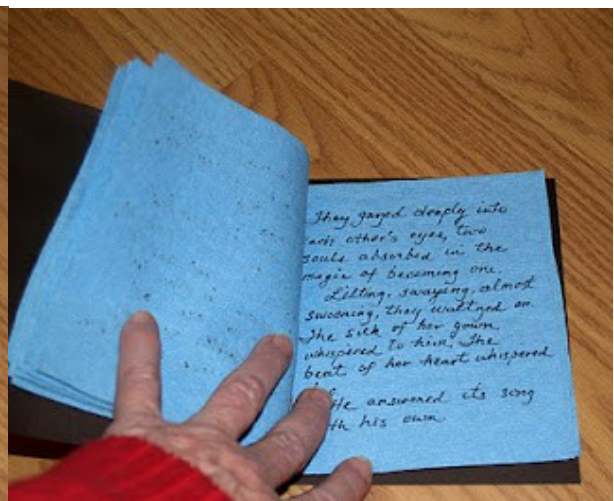 They gazed deeply into
each other's eyes, two
souls absorbed in the
magic of becoming one.
Lilting, swaying, almost
swooning, they waltzed on.
The silk of her gown
whispered to him. The
beat of her heart whispered
He answered its song
his own.